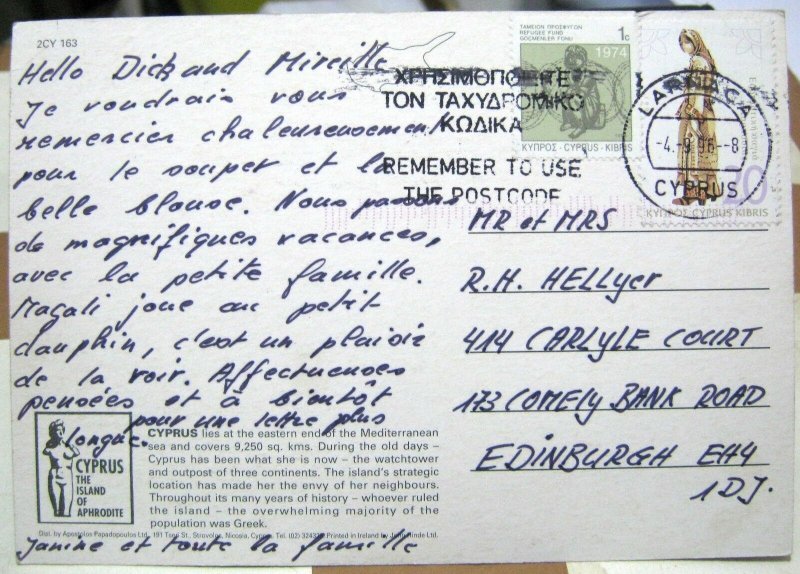 2CY 163
Hello Dick and Mireille
Je voudrais vous
remercier chaleureusement
pour le souper et la
belle blouse. Nous passons
de magnifiques vacances,
avec la petite famille.
Magali joue au petit
dauphin, c'est un plaisir
de la voir. Affectueuses
pensées et à bientôt
pour une lettre plus
longue.
CYPRUS lies at the eastern end of the Mediterranean
sea and covers 9,250 sq. kms. During the old days –
Cyprus has been what she is now – the watchtower
and outpost of three continents. The island's strategic
location has made her the envy of her neighbours.
Throughout its many years of history – whoever ruled
the island – the overwhelming majority of the
population was Greek.
CYPRUS
THE
ISLAND
OF
APHRODITE
Dist. by Apostolos Papadopoulos Ltd., 191 Tseri St., Strovolos, Nicosia, Cyprus. Tel. (02) Printed in Ireland by John Hinde Ltd.
Janine et toute la famille
ΤΑΜΕΙΟΝ ΠΡΟΣΦΥΓΩΝ
REFUGEE FUND
GÖÇMENLER FONU
1c
1974
ΚΥΠΡΟΣ·CYPRUS·KIBRIS
ΧΡΗΣΙΜΟΠΟΙΕΙΤΕ
ΤΟΝ ΤΑΧΥΔΡΟΜΙΚΟ
ΚΩΔΙΚΑ
REMEMBER TO USE
THE POSTCODE
LARNACA
-4.-9 96--8
CYPRUS
20
ΚΥΠΡΟΣ CYPRUS KIBRIS
MR et MRS
R.H. HELLyer
414 CARLYLE COURT
173 COMELY BANK ROAD
EDINBURGH EH4
1DJ.